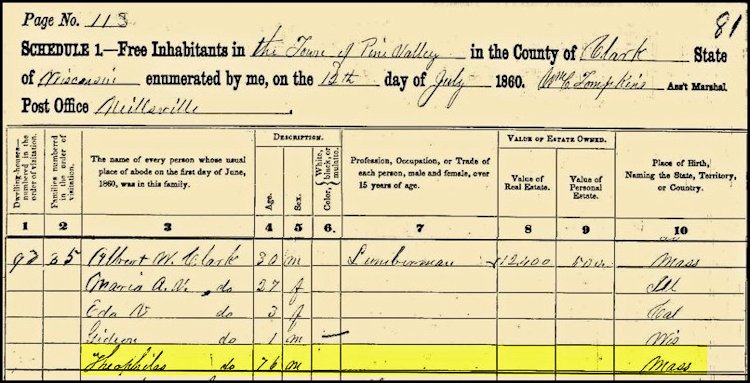 Page No. 113
81
SCHEDULE 1.—Free Inhabitants in the Town of Pine Valley in the County of Clark State
of Wisconsin enumerated by me, on the 12th day of July 1860. Wm C Tompkins Ass't Marshal.
Post Office Neillsville
Dwelling-houses—numbered in the order of visitation.
Families numbered in the order of visitation.
The name of every person whose usual place of abode on the first day of June, 1860, was in this family.
DESCRIPTION.
Age.
Sex.
Color, { White, black, or mulatto.
Profession, Occupation, or Trade of each person, male and female, over 15 years of age.
VALUE OF ESTATE OWNED.
Value of Real Estate.
Value of Personal Estate.
Place of Birth, Naming the State, Territory, or Country.
1 2 3 4 5 6. 7 8 9 10
35 Albert W. Clark 30 m Lumberman 12,400 500 Mass
Maria A. V. do 27 f Ill
Eda do 3 f Cal
Gideon do 1 m Wis
Theophilas do 76 m Mass